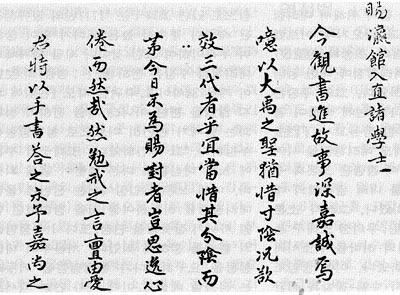 賜瀛館入直諸學士
今觀書進故事深嘉誠焉
噫以大禹之聖猶惜寸陰況欲
效三代者乎宜當惜其分陰而
苐今日不為賜對者豈思逸心
倦而然哉然勉戒之言亶由愛
君特以手書答之示予嘉尚之